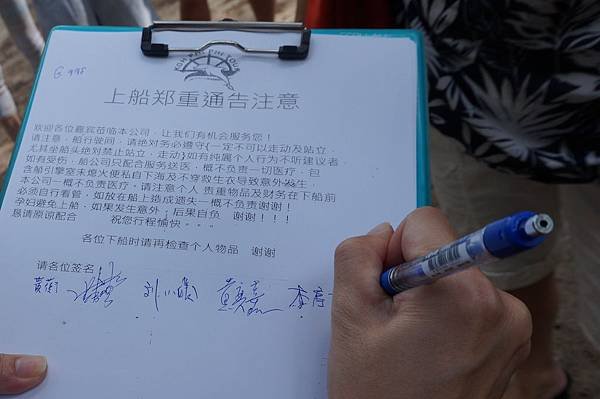 上船郑重通告注意
欢迎各位嘉宾莅临本公司，让我们有机会服务您！
请注意，船行驶间，请绝对务必遵守(一定不可以走动及站立，
尤其坐船头绝对禁止站立，走动)如有纯属个人行为不听建议者，
如有受伤，船公司只配合服务送医，概不负责一切医疗，包
含船引擎室未熄火便私自下海及不穿救生衣导致意外发生，
本公司一概不负责医疗。请注意个人贵重物品及财务在下船前
必须自行看管，如放在船上造成遗失一概不负责谢谢！
孕妇避免上船，如果发生意外，后果自负 谢谢！！！
恳请原谅配合 祝您行程愉快。。。
各位下船时请再检查个人物品 谢谢
请各位签名